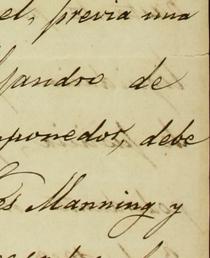 el, previa una
jandro de
mponedor, debe
es Manning y